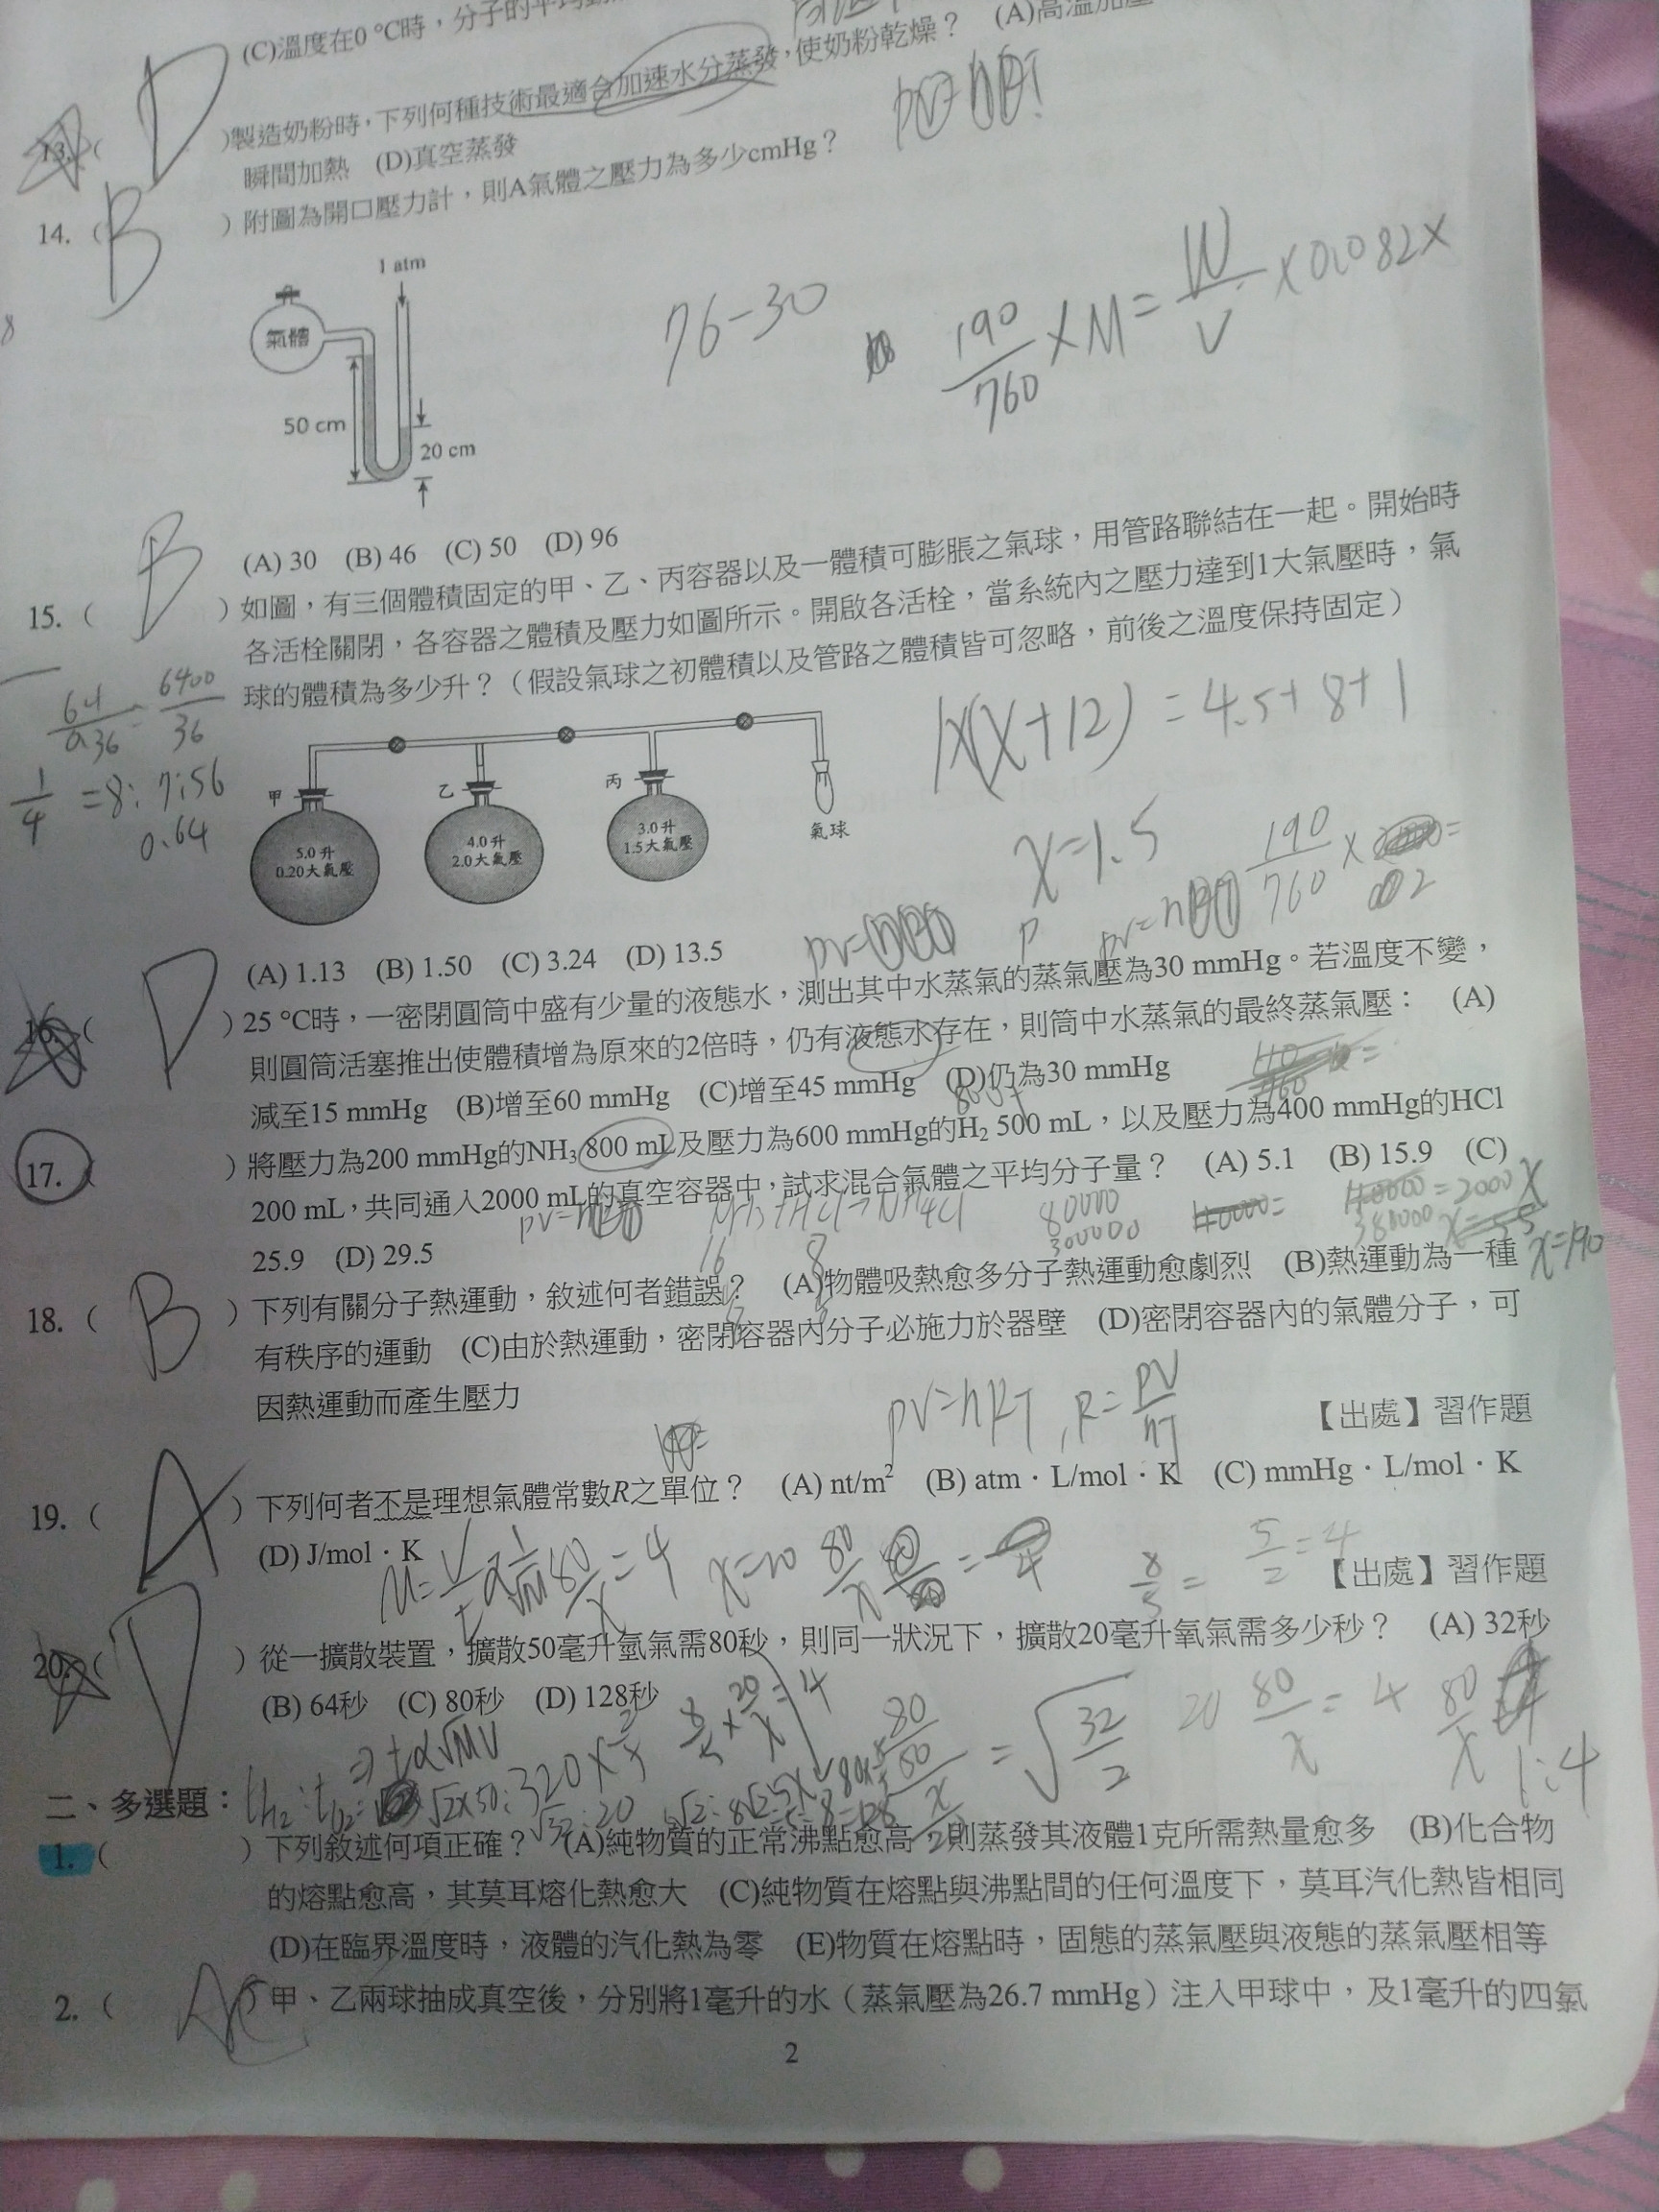 (C)溫度在0 °C時，分子的平均
13. ( D )製造奶粉時，下列何種技術最適合加速水分蒸發，使奶粉乾燥？ (A)高溫加壓
瞬間加熱 (D)真空蒸發
14. ( B ) 附圖為開口壓力計，則A氣體之壓力為多少cmHg？
1 atm
氣體
50 cm
20 cm
76-30
190/760 × M = W/V × 0.082 ×
(A) 30 (B) 46 (C) 50 (D) 96
15. ( B ) 如圖，有三個體積固定的甲、乙、丙容器以及一體積可膨脹之氣球，用管路聯結在一起。開始時
各活栓關閉，各容器之體積及壓力如圖所示。開啟各活栓，當系統內之壓力達到1大氣壓時，氣
球的體積為多少升？（假設氣球之初體積以及管路之體積皆可忽略，前後之溫度保持固定）
1×(x+12) = 4.5+8+1
x=1.5
甲
5.0 升
0.20大氣壓
乙
4.0升
2.0大氣壓
丙
3.0升
1.5大氣壓
氣球
(A) 1.13 (B) 1.50 (C) 3.24 (D) 13.5
16. ( D ) 25 °C時，一密閉圓筒中盛有少量的液態水，測出其中水蒸氣的蒸氣壓為30 mmHg。若溫度不變，
則圓筒活塞推出使體積增為原來的2倍時，仍有液態水存在，則筒中水蒸氣的最終蒸氣壓： (A)
減至15 mmHg (B)增至60 mmHg (C)增至45 mmHg (D)仍為30 mmHg
17. ( ) 將壓力為200 mmHg的NH₃ 800 mL及壓力為600 mmHg的H₂ 500 mL，以及壓力為400 mmHg的HCl
200 mL，共同通入2000 mL的真空容器中，試求混合氣體之平均分子量？ (A) 5.1 (B) 15.9 (C)
25.9 (D) 29.5
NH₃+HCl→NH₄Cl
80000
300000
380000
x=190
18. ( B ) 下列有關分子熱運動，敘述何者錯誤？ (A)物體吸熱愈多分子熱運動愈劇烈 (B)熱運動為一種
有秩序的運動 (C)由於熱運動，密閉容器內分子必施力於器壁 (D)密閉容器內的氣體分子，可
因熱運動而產生壓力
PV=nRT, R=PV/nT
【出處】習作題
19. ( A ) 下列何者不是理想氣體常數R之單位？ (A) nt/m² (B) atm．L/mol．K (C) mmHg．L/mol．K
(D) J/mol．K
【出處】習作題
20. ( D ) 從一擴散裝置，擴散50毫升氫氣需80秒，則同一狀況下，擴散20毫升氧氣需多少秒？ (A) 32秒
(B) 64秒 (C) 80秒 (D) 128秒
二、多選題：
1. ( ) 下列敘述何項正確？ (A)純物質的正常沸點愈高，則蒸發其液體1克所需熱量愈多 (B)化合物
的熔點愈高，其莫耳熔化熱愈大 (C)純物質在熔點與沸點間的任何溫度下，莫耳汽化熱皆相同
(D)在臨界溫度時，液體的汽化熱為零 (E)物質在熔點時，固態的蒸氣壓與液態的蒸氣壓相等
2. ( AC ) 甲、乙兩球抽成真空後，分別將1毫升的水（蒸氣壓為26.7 mmHg）注入甲球中，及1毫升的四氯
2